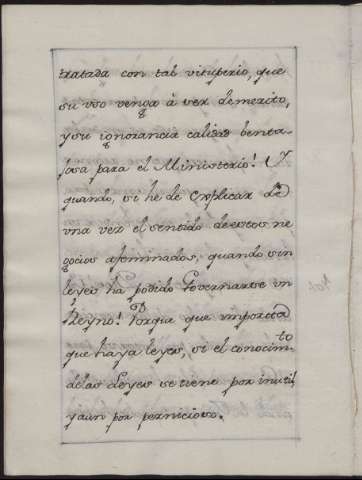 tratada con tal vituperio, que
su vso venga â ser demerito,
y su ignorancia calidad benta-
josa para el Ministerio! Y
quando, si he de explicar de
vna vez el sentido de estos ne
gocios afeminados, quando sin
leyes ha podido Governarse vn
Reyno! Porque que importa
que haya leyes, si el conocim.to
de las Leyes se tiene por inutil
y aun por pernicioso.